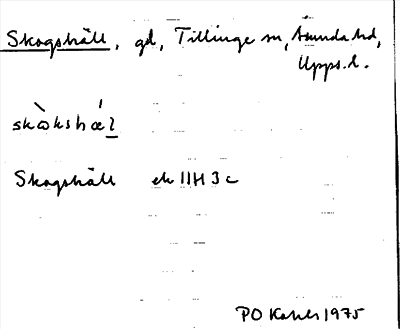 Skogshäll, gd, Tillinge sn, Åsunda hd,
Upps. l.
skὼkshǽl
Skogshäll ek 11H 3c
PO 1975